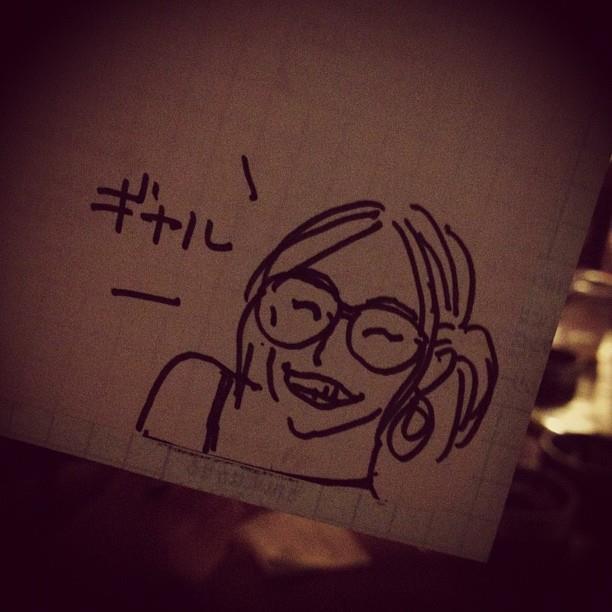 ギャル